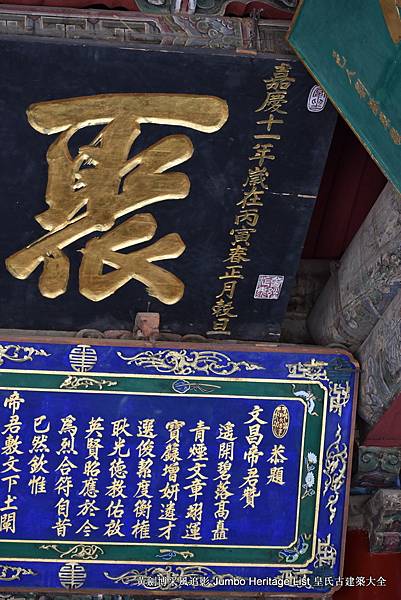 嘉慶十一年歲在丙寅春正月穀旦
聚
恭題
文昌帝君贊
遙開碧落高矗
青煙文章翊運
寶籙增妍遴才
選俊絜度衡權
耿光德教佑啟
英賢昭應於今
為烈合符自昔
已然欽惟
帝君敷文下土闓
黃劍博采風追影 Jumbo Heritage List 皇氏古建築大全